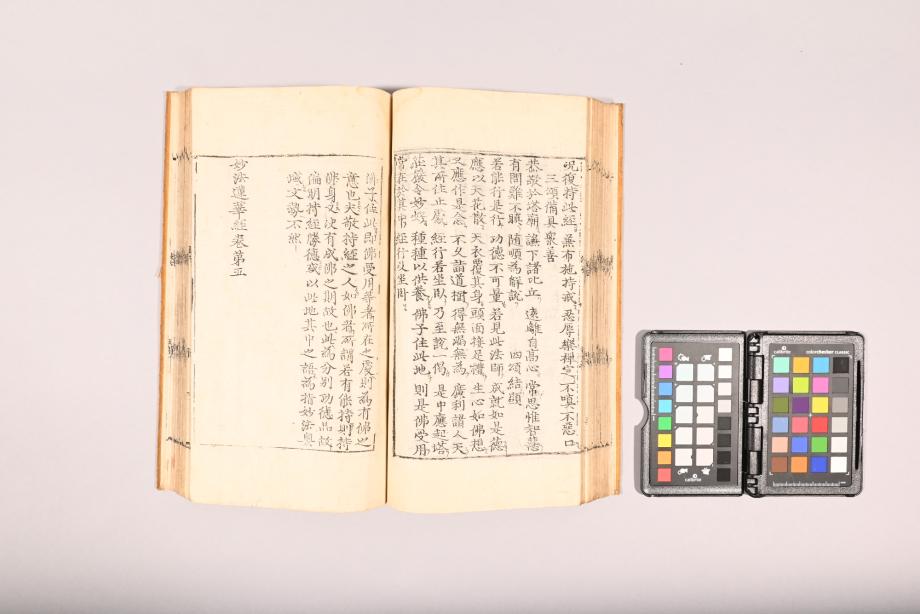 況復持此經 兼布施持戒 忍辱樂禪定 不嗔不惡口
三頌備具衆善
恭敬於塔廟 謙下諸比丘 遠離自高心 常思惟智慧
有問難不嗔 隨順爲解說 四頌結顯
若能行是行 功德不可量 若見此法師 成就如是德
應以天花散 天衣覆其身 頭面接足禮 生心如佛想
又應作是念 不久詣道樹 得無漏無爲 廣利諸人天
其所住止處 經行若坐臥 乃至說一偈 是中應起塔
莊嚴令妙好 種種以供養 佛子住此地 則是佛受用
常在於其中 經行及坐臥
佛子住此即佛受用等者所在之處則爲有佛之
意也夫敬持經之人如佛者所謂若有能持則持
佛身必沒有成佛之期故也此爲分別功德品故
偏明持經勝德或以此地其中之語爲指妙法奧
域文勢不然
妙法蓮華經卷第五
calibrite
colorchecker CLASSIC
calibrite